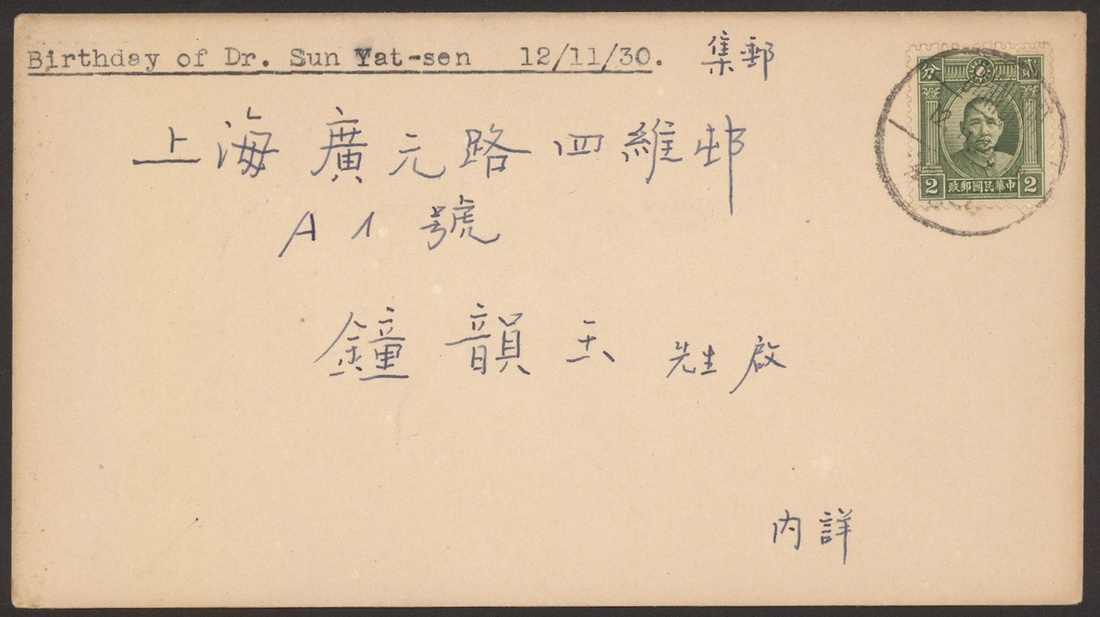 Birthday of Dr. Sun Yat-sen 12/11/30. 集郵
上海廣元路四維邨
A1號
鐘韻玉 先生 啟
內詳
分 貳
2 政郵國民華中 2